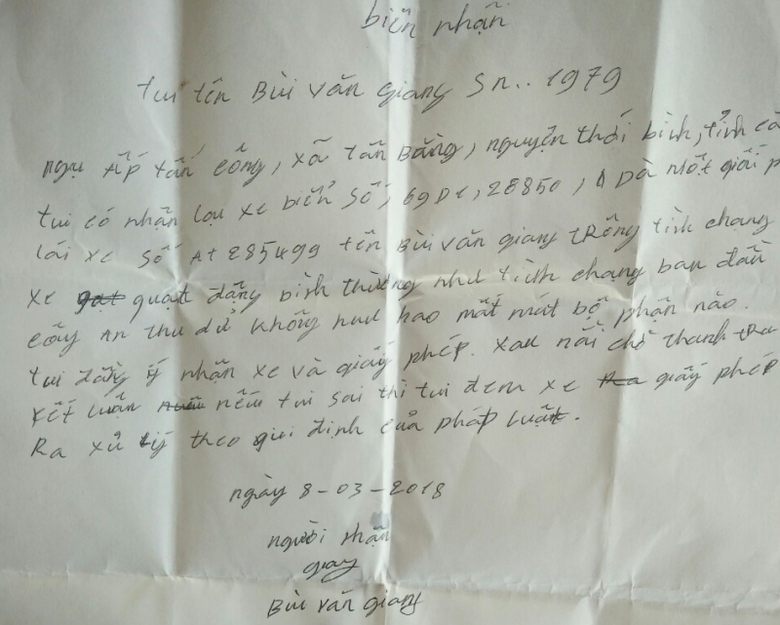 biên nhận
tui tên Bùi văn giang Sn.. 1979
ngụ Ấp tấn công, xã tân Bằng, nguyện thới bình, tỉnh cà
tui có nhận lại xe biển số, 69D1, 28850, Dà một giấi p
lái xe số At 285499 tên Bùi văn giang tRông tình chạng
xe quạt đãng bình thường như tình chạng ban đầu
công an thu dử không hưu hao mất mát bộ phận nào.
tui đồng ý nhận xe và giấy phép. xau nài chờ thanh tra
kết luận nếu tui sai thì tui đem xe giấy phép
Ra xử lý theo qui định của pháp luật.
ngày 8-03-2018
người nhận
giang
Bùi văn giang